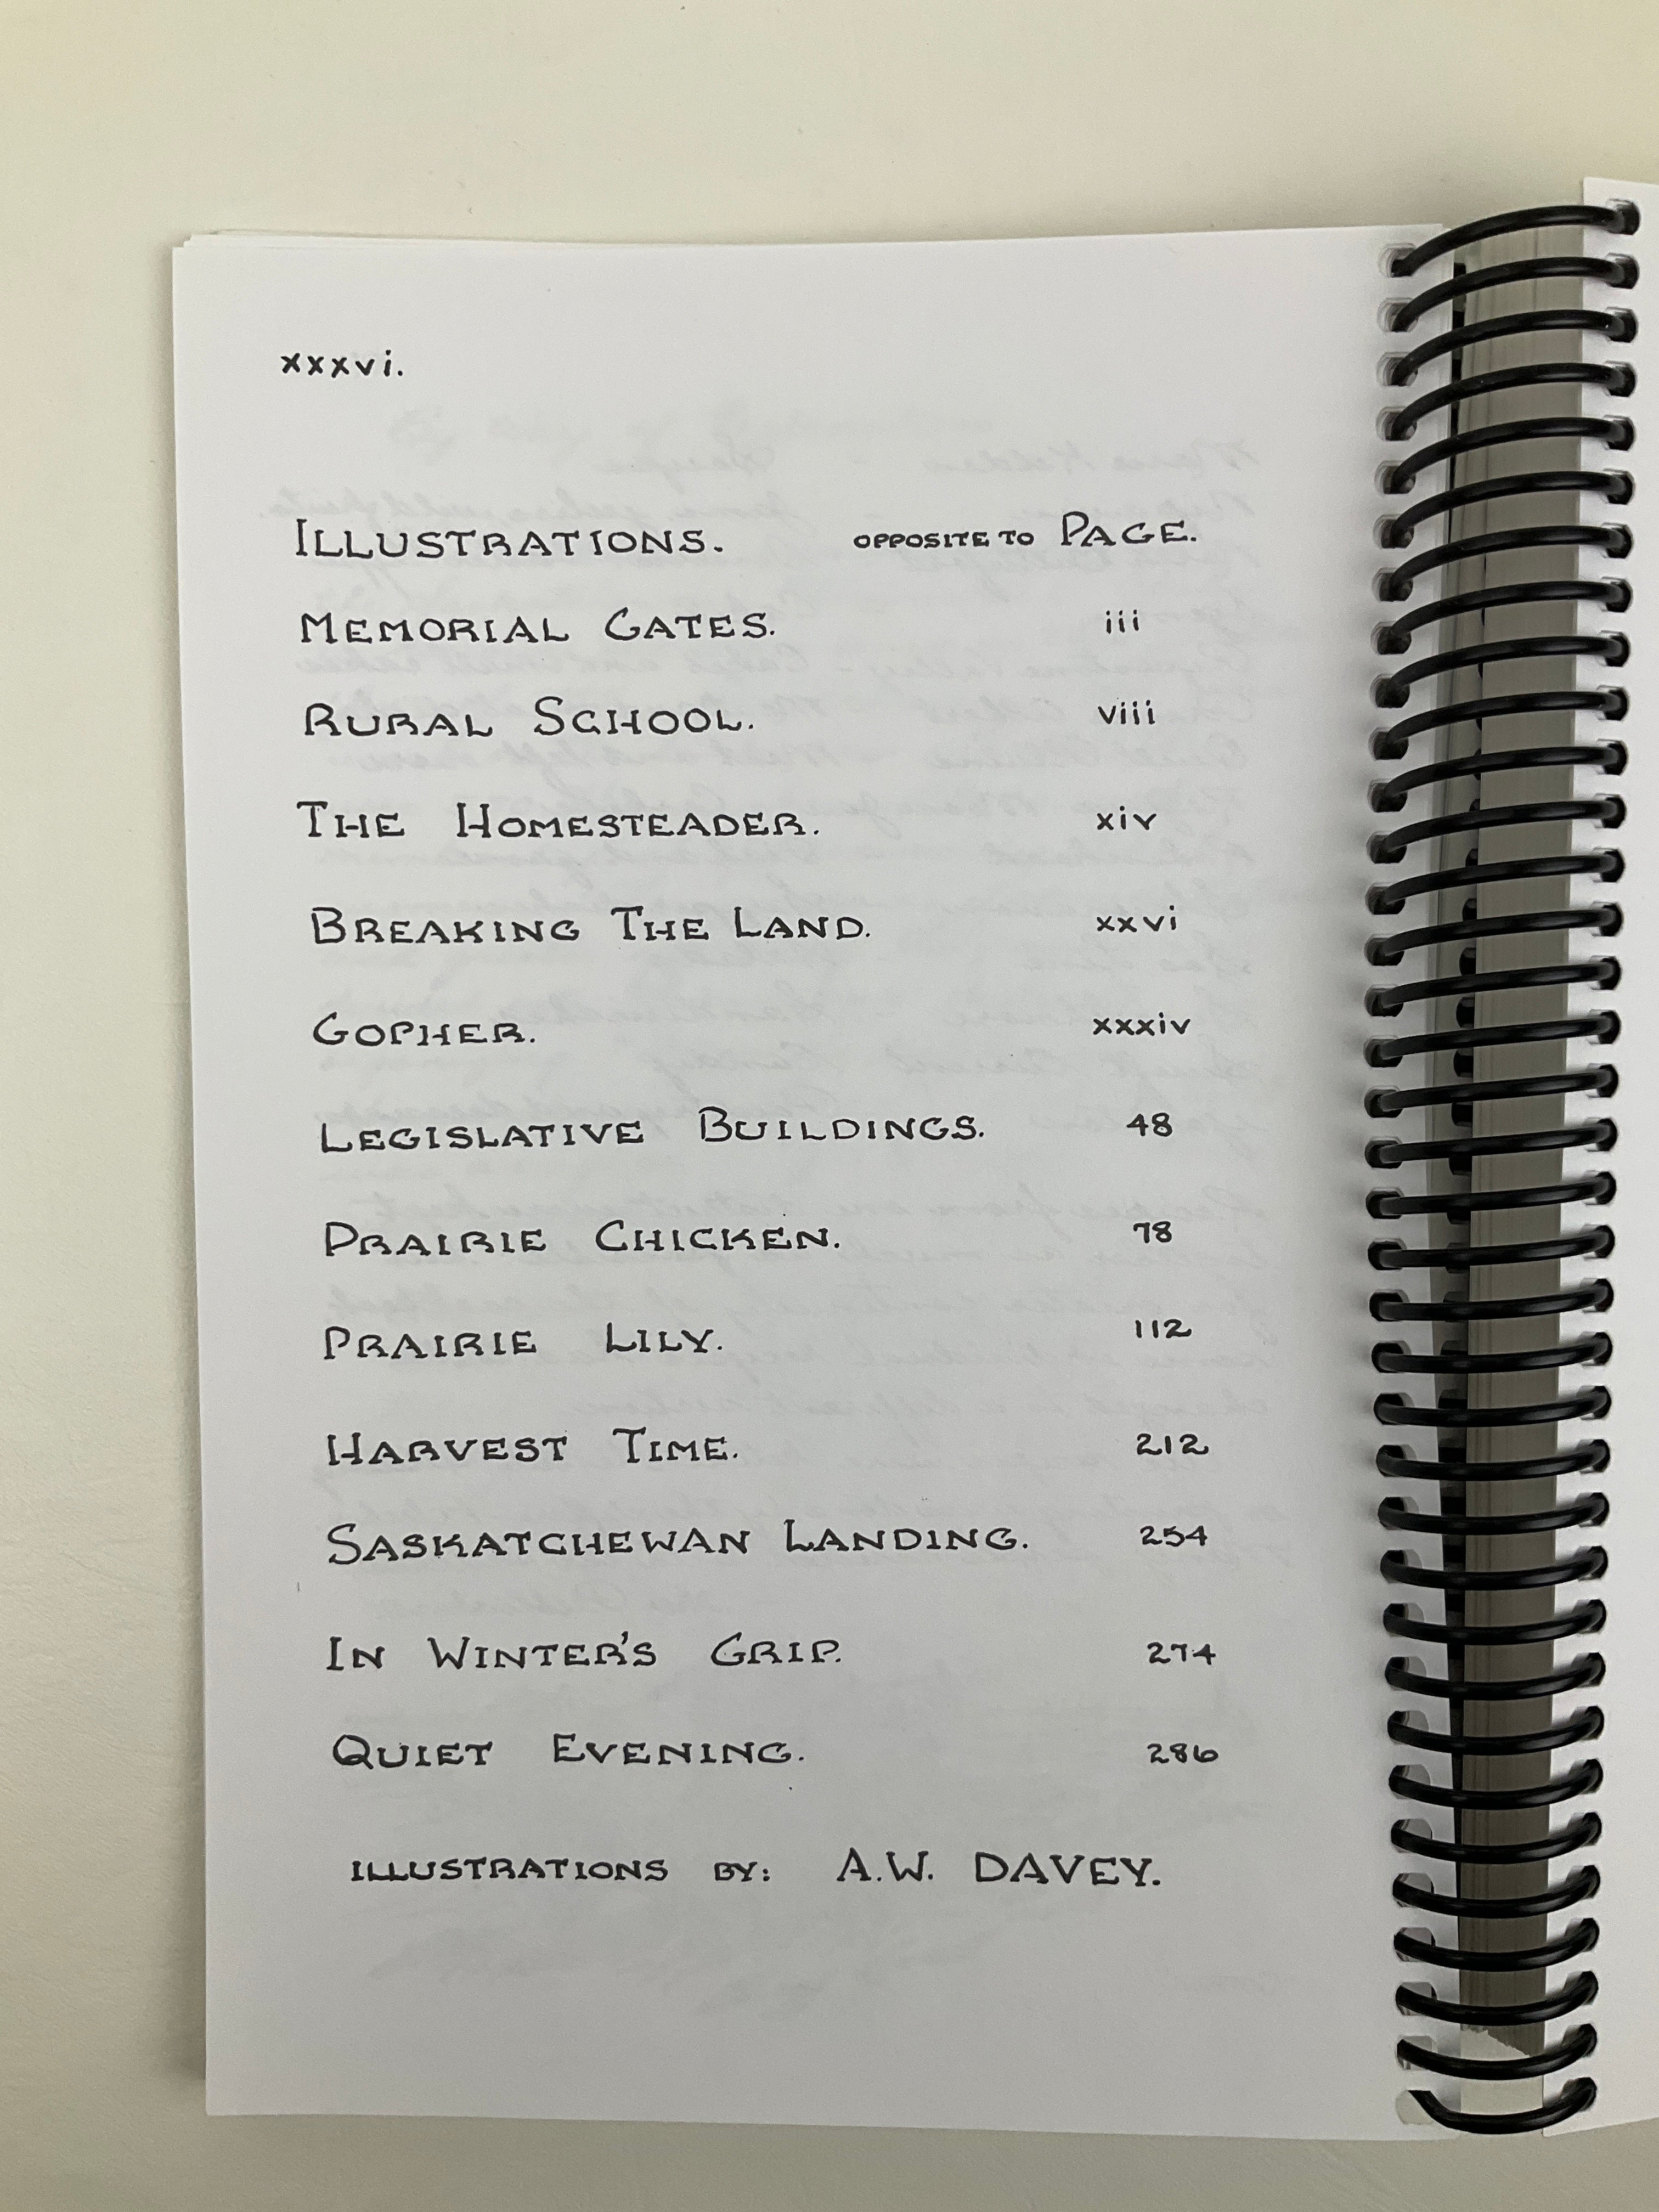 xxxvi.
ILLUSTRATIONS. OPPOSITE TO PAGE.
MEMORIAL GATES. iii
RURAL SCHOOL. viii
THE HOMESTEADER. xiv
BREAKING THE LAND. xxvi
GOPHER. xxxiv
LEGISLATIVE BUILDINGS. 48
PRAIRIE CHICKEN. 78
PRAIRIE LILY. 112
HARVEST TIME. 212
SASKATCHEWAN LANDING. 254
IN WINTER'S GRIP. 274
QUIET EVENING. 286
ILLUSTRATIONS BY: A.W. DAVEY.